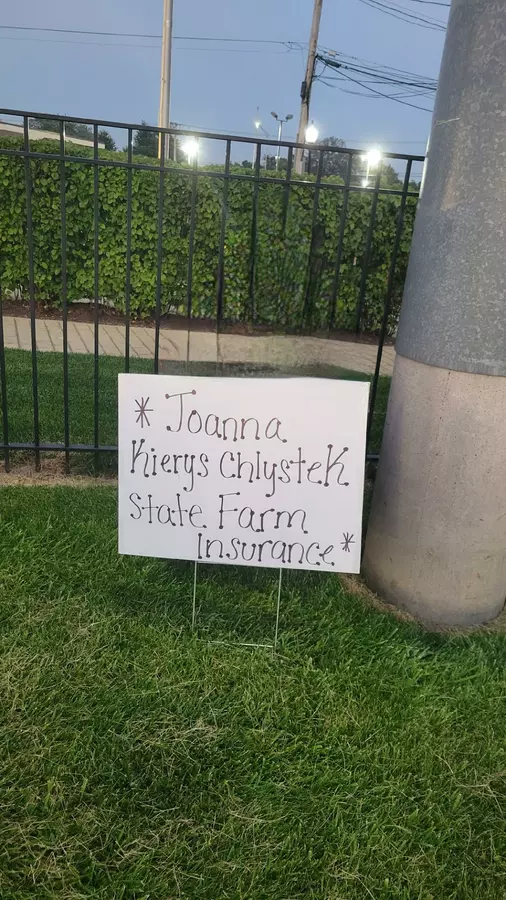 * Joanna
Kierys Chlystek
State Farm
Insurance *